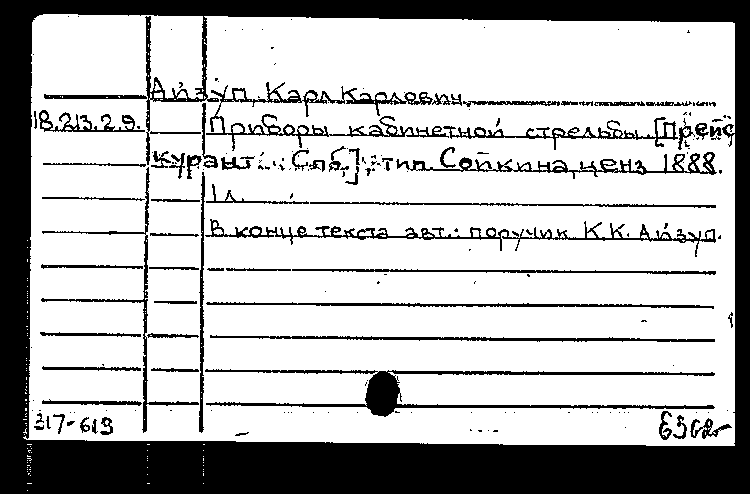 Айзуп, Карл Карлович.
18.213.2.9. Приборы кабинетной стрельбы. [Прейс
курант. Спб.], тип. Сойкина, ценз 1888.
1 л.
В конце текста авт.: поручик К.К. Айзуп.
317-613